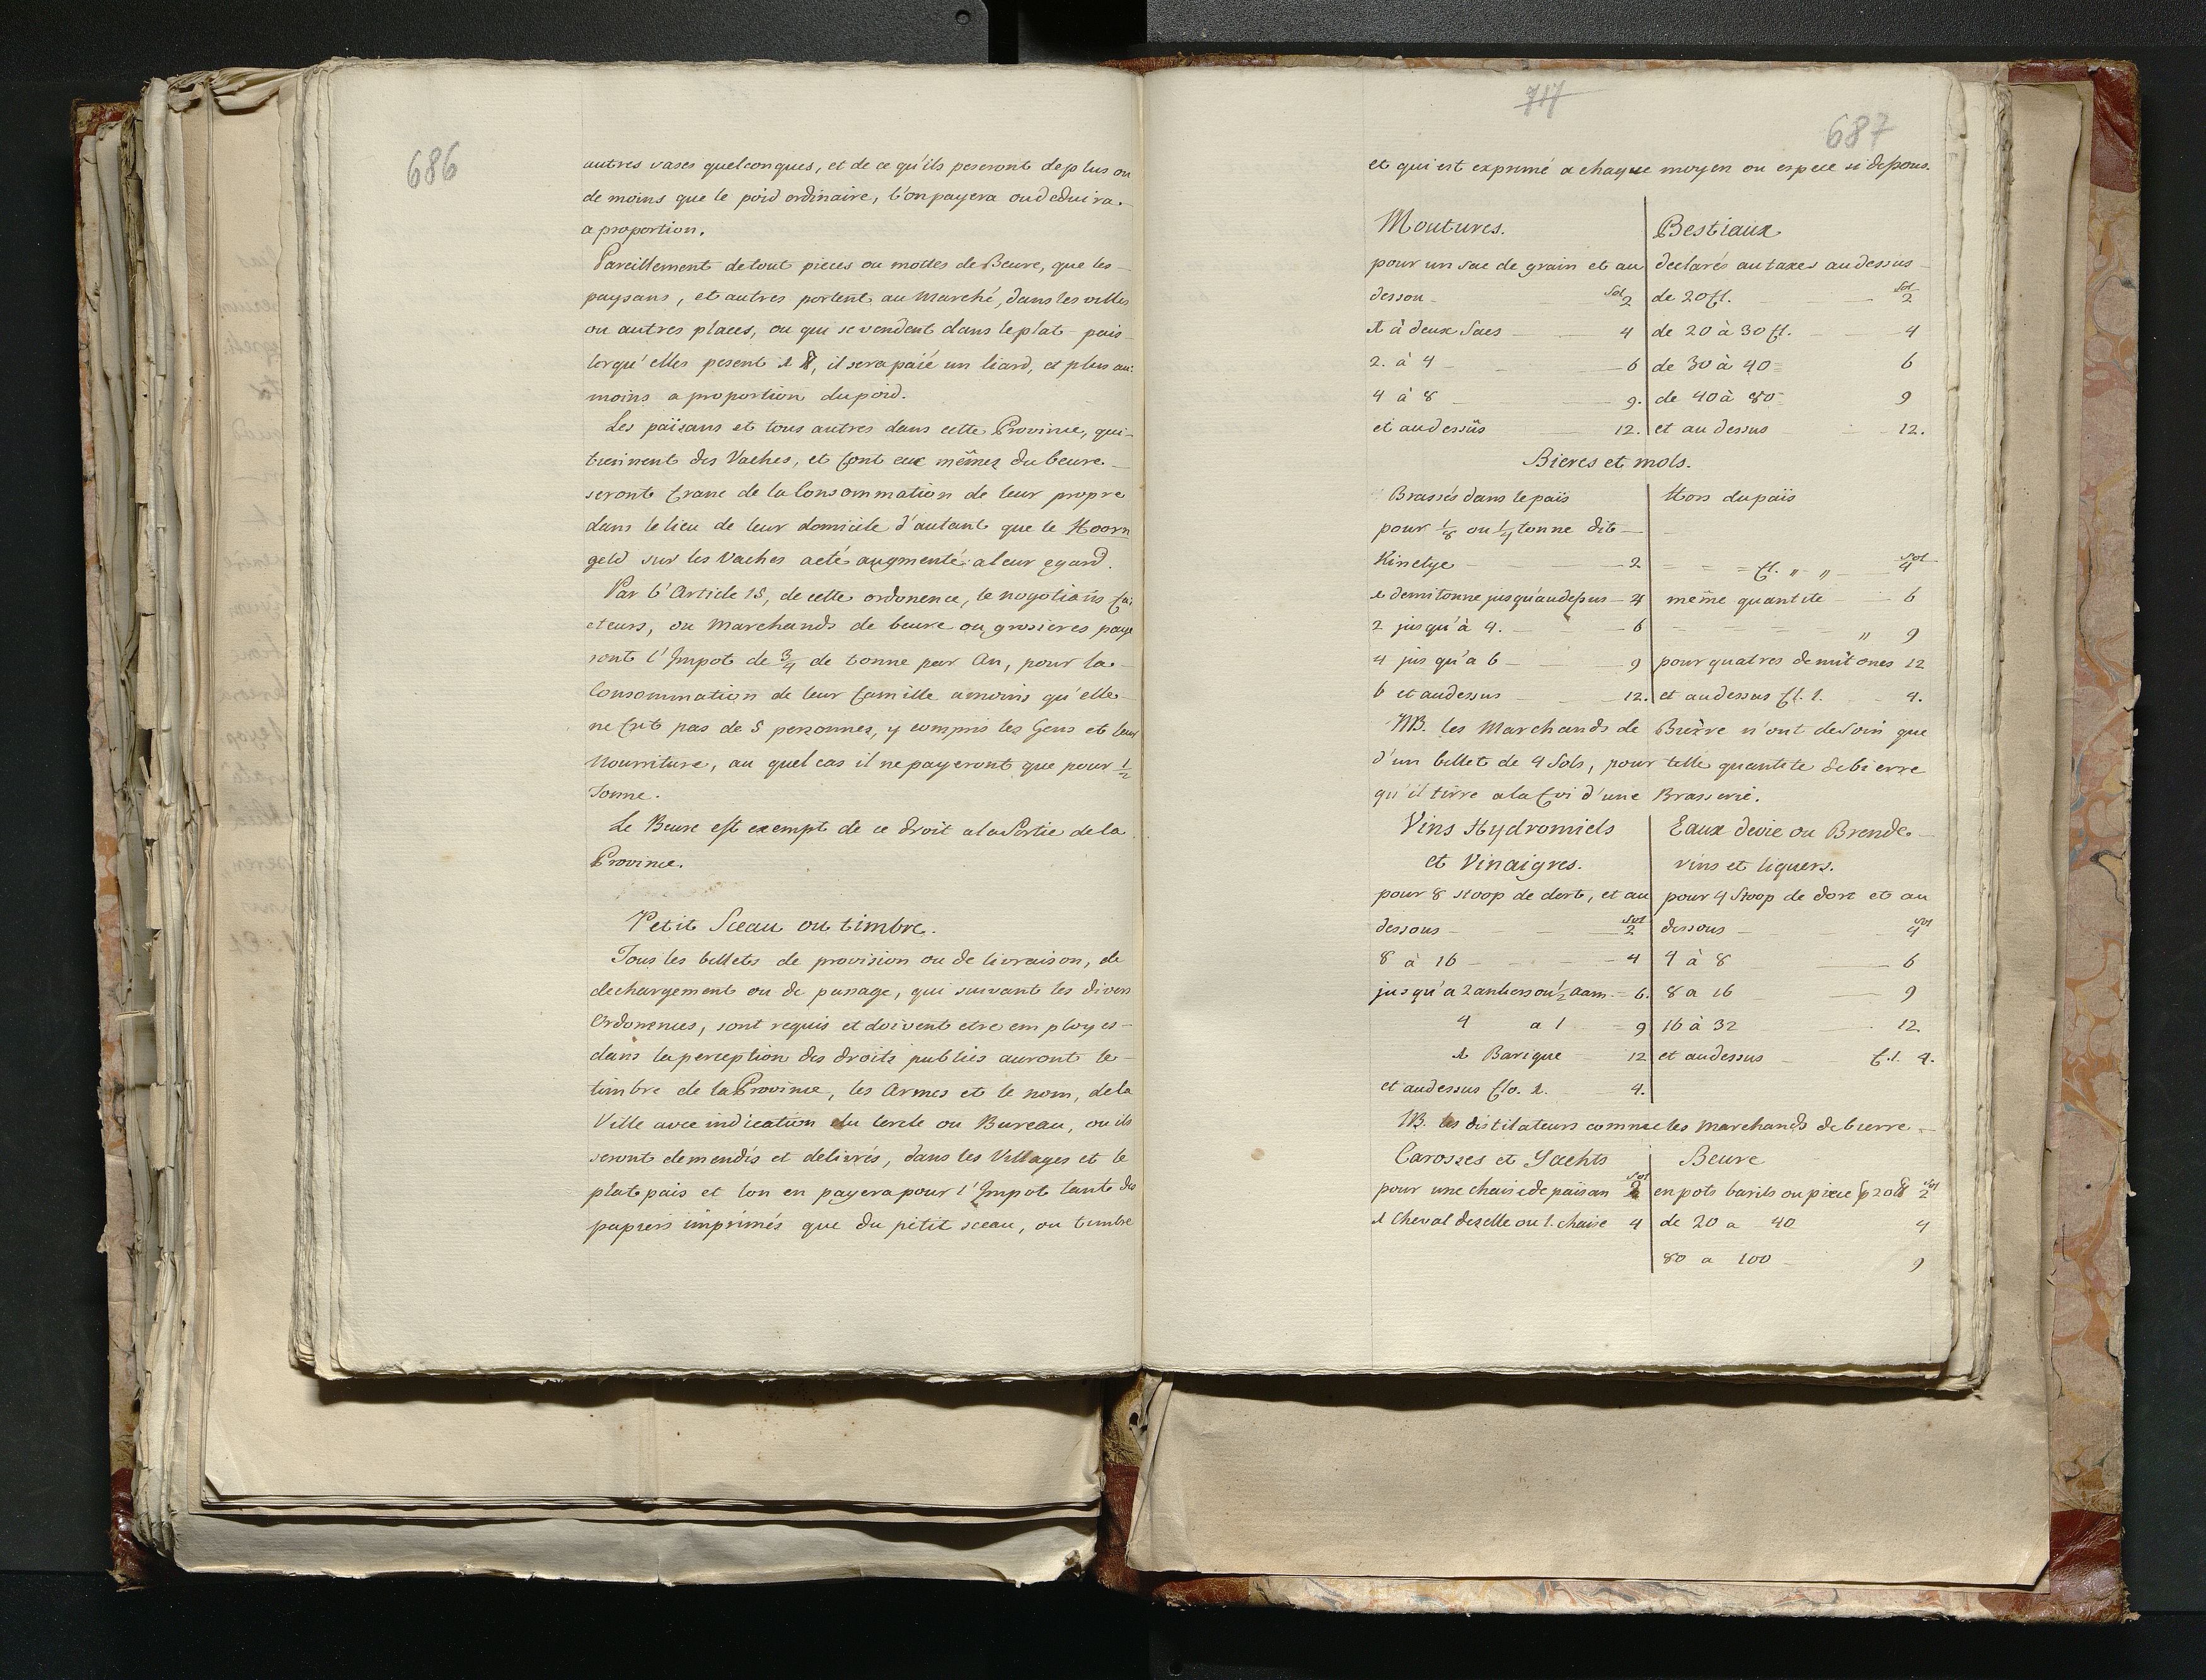 686
autres vases quelconques, et de ce qu'ils peseront de plus ou
de moins que le poid ordinaire, l'on payera ou deduira
a proportion.
Pareillement de tout pieces ou mottes de Beure, que les
paysans, et autres portent au Marché, dans les villes
ou autres places, ou qui se vendent dans le plat pais
lorqu'elles pesent 1 ℔, il sera paié un liard, et plus au
moins a proportion du poid.
Les païsans et tous autres dans cette Province, qui
tiennent des Vaches, et font eux mêmes du beure
seront franc de la Consommation de leur propre
dans le lieu de leur domicile d'autant que le Hoorn
geld sur les Vaches a eté augmenté a leur egard.
Par l'Article 15, de cette ordonence, le nogotians fai
cteurs, ou Marchands de beure ou grosieres paye
ront l'Impot de 3/4 de tonne par An, pour la
Consommation de leur famille amoins qu'elle
ne fut pas de 5 personnes, y compris les Gens et leur
Nourriture, au quel cas il ne payeront que pour 1/2
Tonne.
Le Beure est exempt de ce droit a la Sortie de la
Province.
Petit Sceau ou timbre.
Tous les billets de provision ou de livraison, de
dechargement ou de passage, qui suivant les divers
Ordonnences, sont requis et doivent etre employes
dans la perception des droits publics auront le
timbre de la Province, les Armes et le nom, de la
Ville avec indication du Cercle ou Bureau, ou ils
seront demendés et delivrés, dans les Villages et le
plat pais et lon en payera pour l'Impot tant des
papiers imprimés que du petit sceau, ou timbre
717
687
et qui est exprimé a chaque moyen ou espece si dessous.
Moutures. Bestiaux
pour un sac de grain et au declarés au taxes au dessus
dessou Sol 2 de 20 fl. Sol 2
1 à deux Sacs 4 de 20 à 30 fl. 4
2. à 4 6 de 30 à 40 6
4 à 8 9. de 40 à 80 9
et au dessùs 12. et au dessus 12.
Bieres et mols.
Brassés dans le païs Hors du païs
pour 1/8 ou 1/4 tonne dit
Kinetye 2 = = = fl. " " Sol 4
1 demi tonne jusqu'au dessus 4 même quantite 6
2 jusqu'à 4. 6 " 9
4 jusqu'a 6 9 pour quatres demit ones 12
6 et au dessus 12. et au dessus fl. 1. 4.
NB. les Marchands de Bierre n'ont desoin que
d'un billet de 4 Sols, pour telle quantite de bierre
qu'il tirre a la foi d'une Brasserie.
Vins Hydromiels Eaux de vie ou Brende
et Vinaigres. vins et liquers.
pour 8 stoop de dort, et au pour 4 Stoop de dort et au
dessous Sol 2 dessous Sol 4
8 à 16 4 4 à 8 6
jusqu'a 2 ankers ou 1/2 aam. 6. 8 a 16 9
4 a 1 9 16 à 32 12.
1 Barique 12 et au dessus f. 1. 4.
et au dessus flo. 1. 4.
NB. les distilateurs comme les marchands de bierre
Carosses et Yachts Beure
pour une chaise de païsan Sol 2 en pots barils ou piece p 20 ℔ Sol 2
1 Cheval de selle ou 1. chaise 4 de 20 a 40 4
80 a 100 9